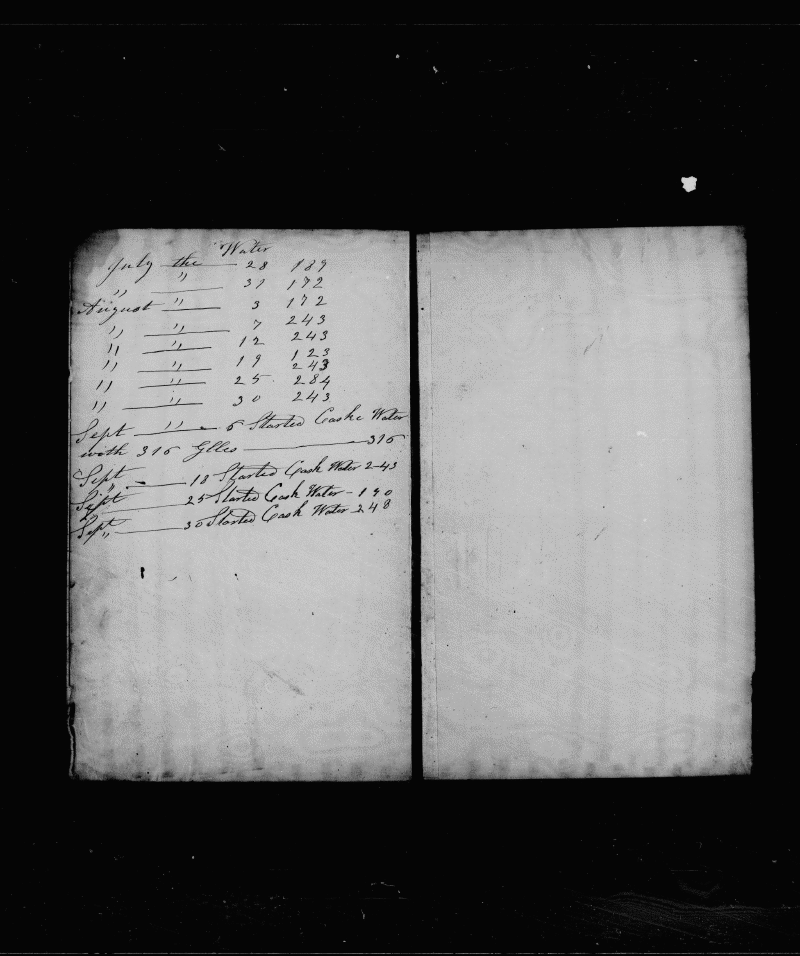 Water
July the — 28 189
" " — 31 172
August " — 3 172
" " — 7 243
" " — 12 243
" " — 19 123
243
" " — 25 284
" — 30 243
Sept " — 5 Started Caske Water
with 315 Glles — 315
Sept " — 18 Started Cask Water 243
Sept " — 25 Started Cask Water - 190
Sept " — 30 Started Cask Water 248